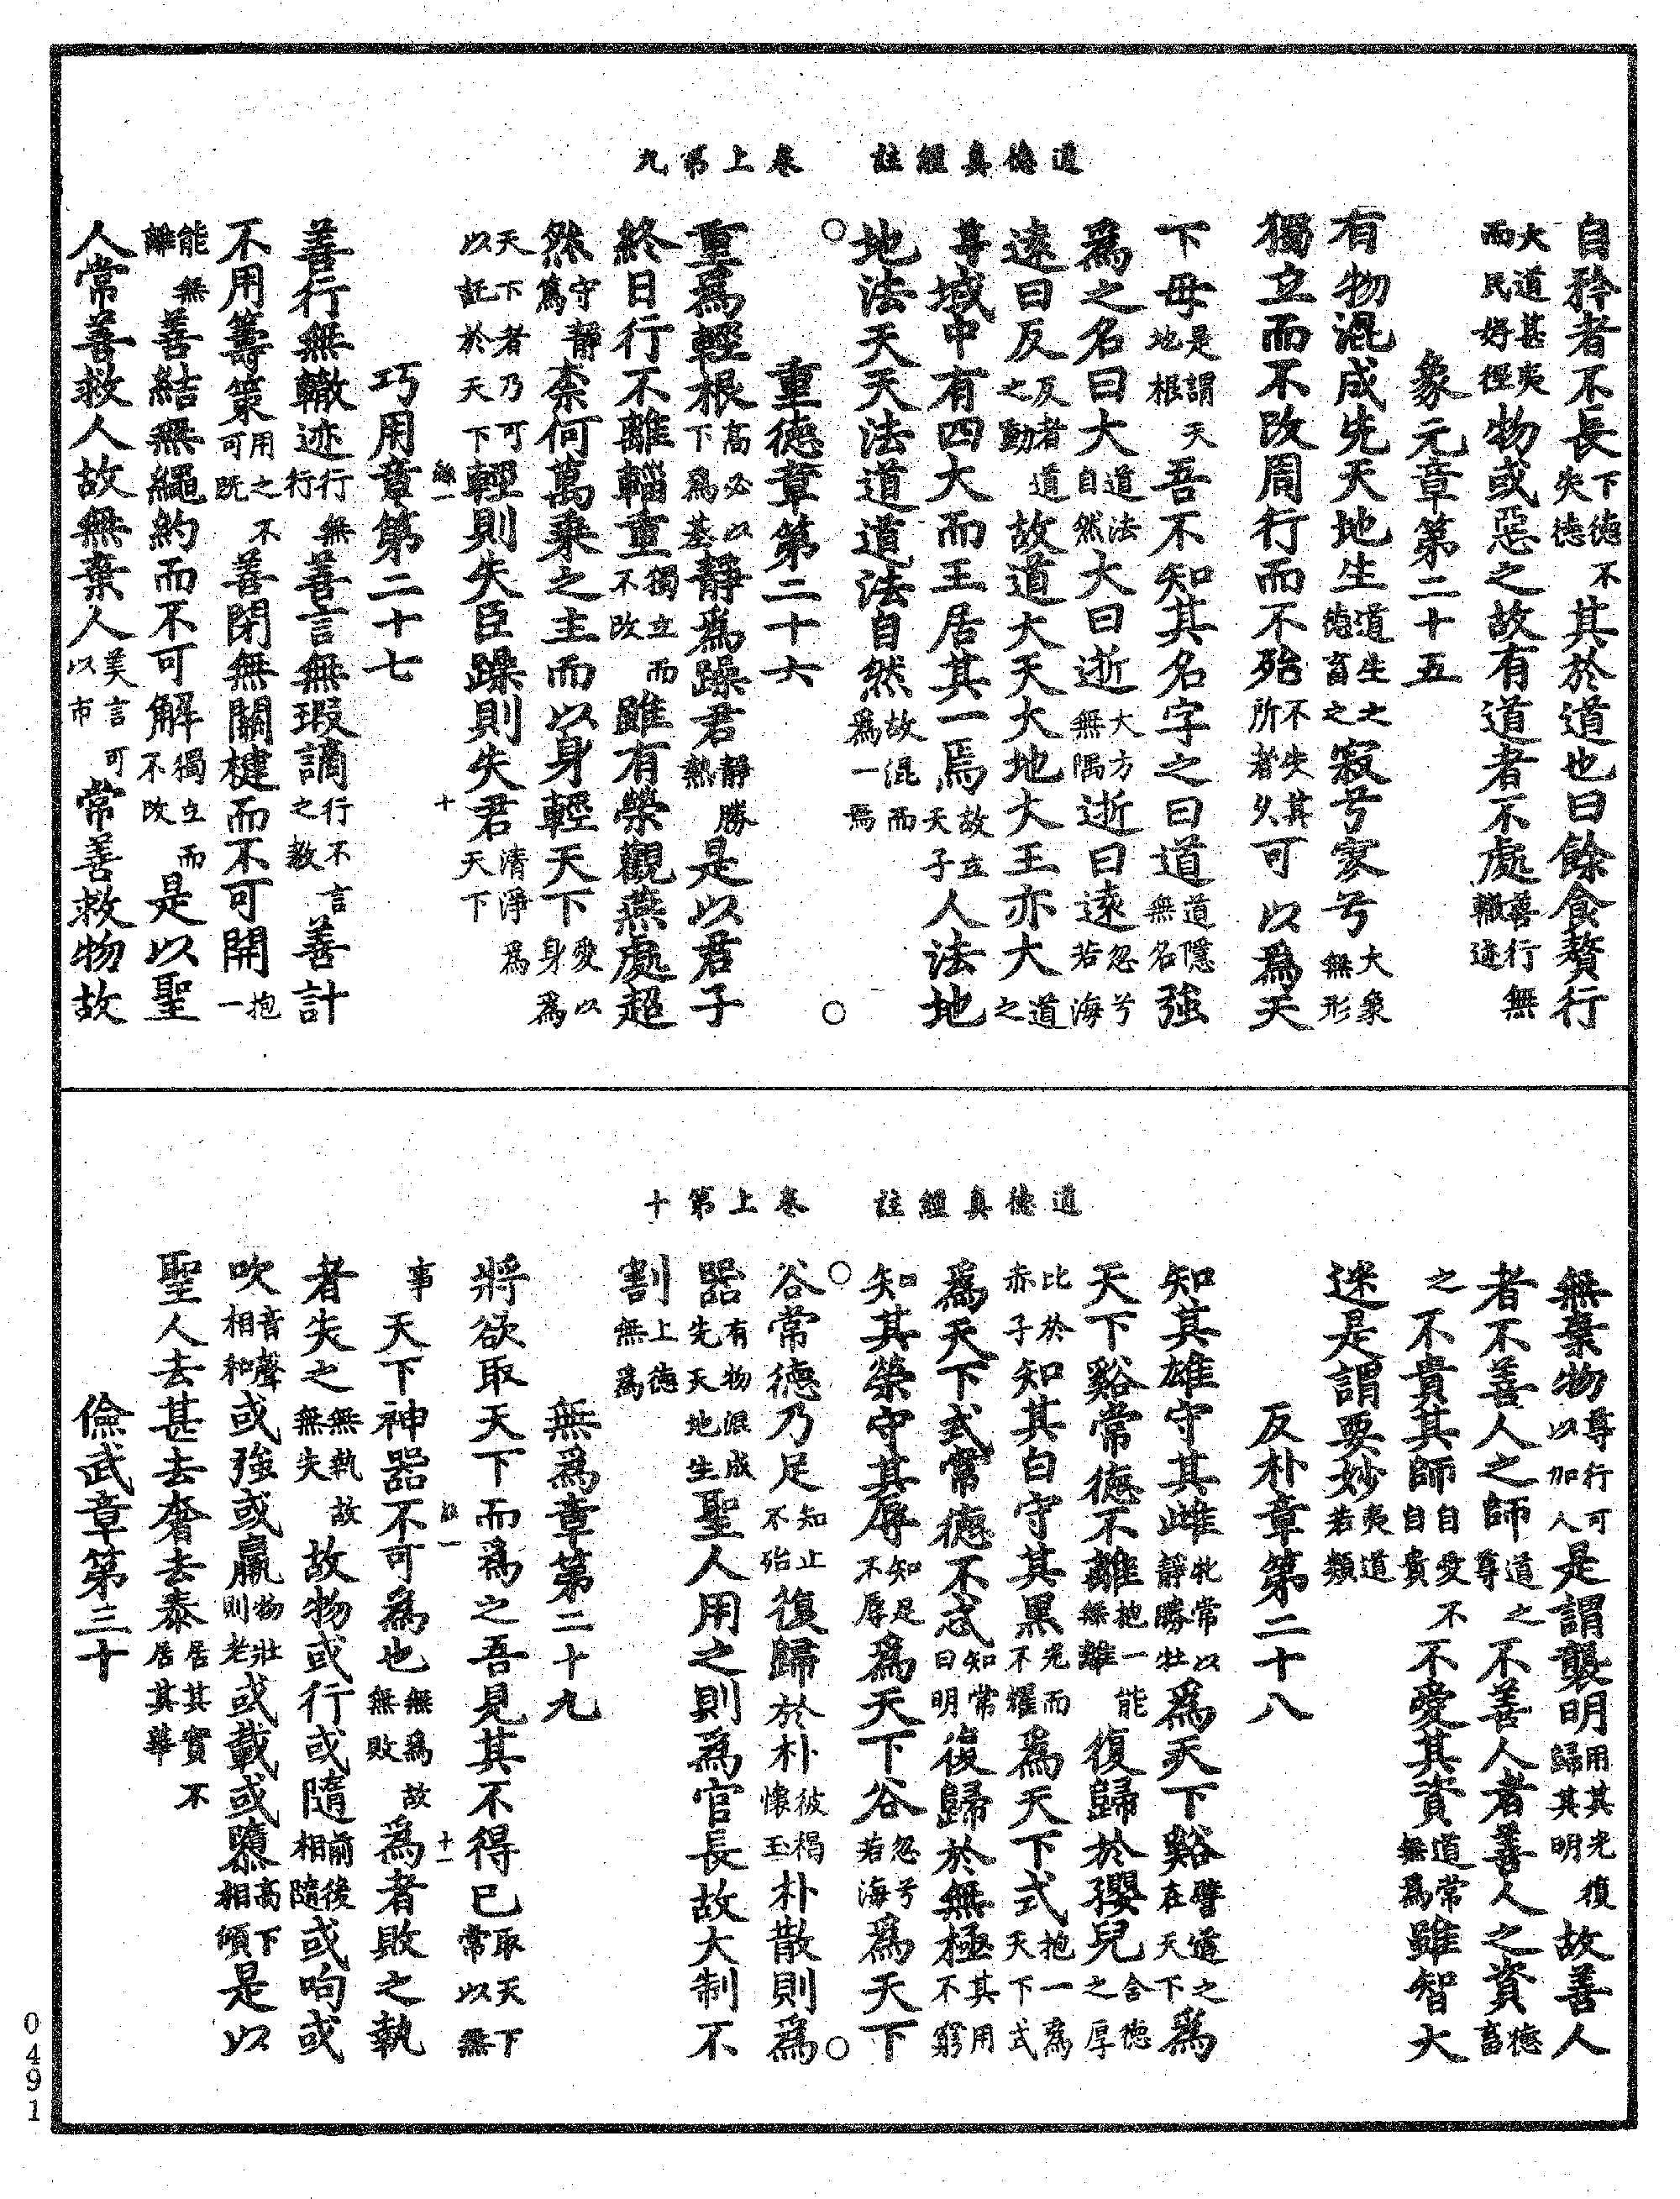 道德真經註　卷上第九
自矜者不長下德不失德其於道也曰餘食贅行
大道甚夷而民好徑物或惡之故有道者不處善行無轍迹
象元章第二十五
有物混成先天地生道生之德畜之寂兮寥兮大象無形
獨立而不改周行而不殆不失其所者久可以爲天
下母是謂天地根吾不知其名字之曰道道隱無名強
爲之名曰大道法自然大曰逝大方無隅逝曰遠忽兮若海
遠曰反反者道之動故道大天大地大王亦大道之
尊域中有四大而王居其一焉故立天子人法地
地法天天法道道法自然故混而爲一焉
○　○
重德章第二十六
重爲輕根高必以下爲基靜爲躁君靜勝熱是以君子
終日行不離輜重獨立而不改雖有榮觀燕處超
然守靜篤柰何萬乘之主而以身輕天下愛以身爲
天下者乃可以託於天下輕則失臣躁則失君清淨爲天下
一　十
巧用章第二十七
善行無轍迹行無行善言無瑕讁行不言之教善計
不用籌策用之不可既善閉無關楗而不可開抱一
能無離善結無繩約而不可解獨立而不改是以聖
人常善救人故無棄人美言可以市常善救物故
道德真經註　卷上第十
無棄物尊行可以加人是謂襲明用其光復歸其明故善人
者不善人之師道之尊不善人者善人之資德畜
之不貴其師自愛不自貴不愛其資道常無爲雖智大
迷是謂要妙夷道若類
反朴章第二十八
知其雄守其雌牝常以靜勝牡爲天下谿譬道之在天下爲
天下谿常德不離抱一能無離復歸於孾兒含德之厚
比於赤子知其白守其黑光而不耀爲天下式抱一爲天下式
爲天下式常德不忒知常曰明復歸於無極其用不窮
知其榮守其辱知足不辱爲天下谷忽兮若海爲天下
○　○
谷常德乃足知止不殆復歸於朴被褐懷玉朴散則爲
器有物混成先天地生聖人用之則爲官長故大制不
割上德無爲
無爲章第二十九
將欲取天下而爲之吾見其不得已取天下常以無
一　十一
事天下神器不可爲也無爲故無敗爲者敗之執
者失之無執故無失故物或行或隨前後相隨或呴或
吹音聲相和或強或羸物壯則老或載或隳高下相傾是以
聖人去甚去奢去泰居其實不居其華
儉武章第三十
0491